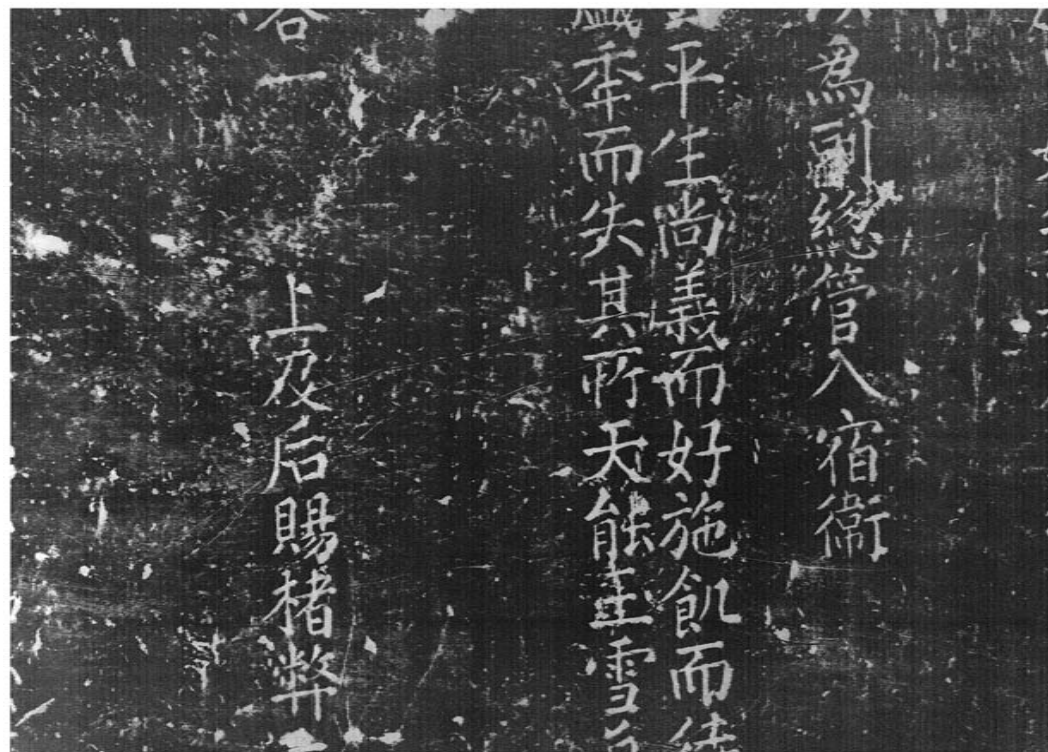 爲副總管入宿衞
平生尚義而好施飢而
年而失其所天能主雪
一
上及后賜楮幣